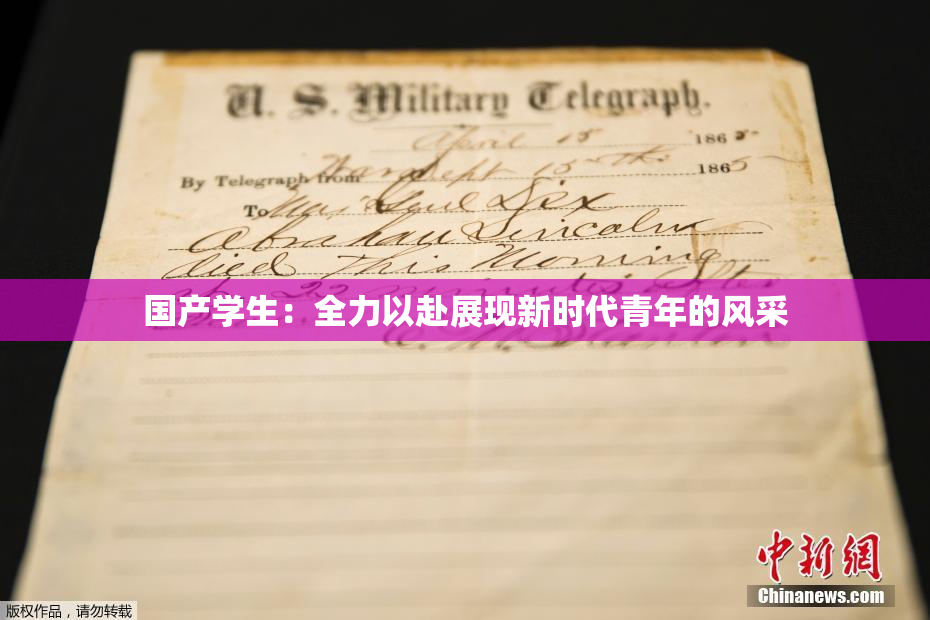 U. S. Military Telegraph.
April 15 1865
By Telegraph from War Dept 15th 1865
To Maj Genl Dix
Abraham Lincoln
died This Morning
at 22 minutes after
国产学生：全力以赴展现新时代青年的风采
中新网
Chinanews.com
版权作品，请勿转载